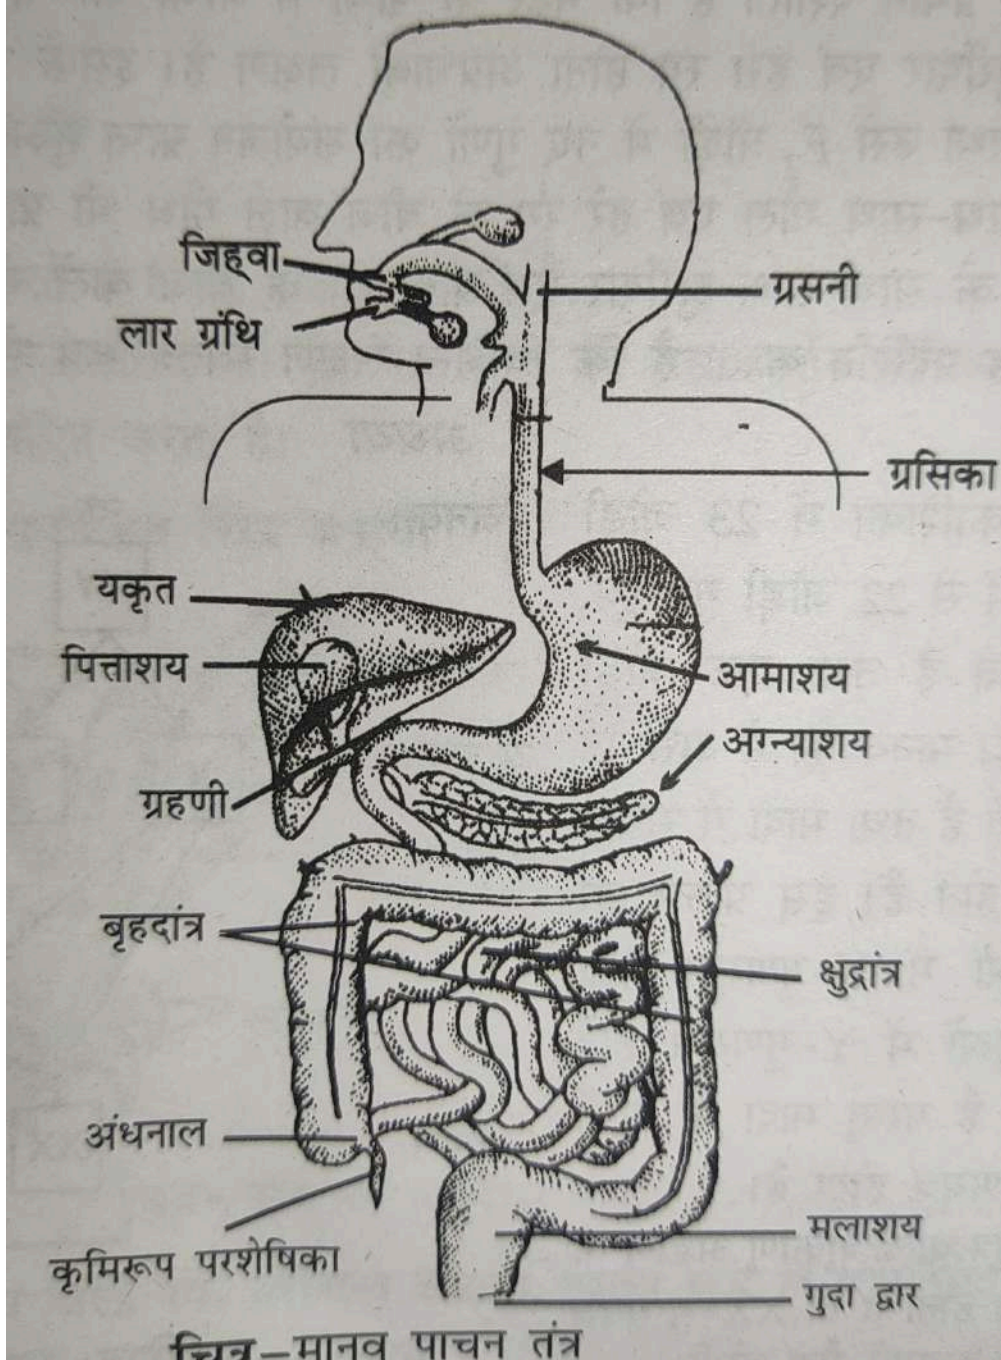 जिह्वा
ग्रसनी
लार ग्रंथि
ग्रसिका
यकृत
पित्ताशय
आमाशय
अग्न्याशय
ग्रहणी
बृहदांत्र
क्षुद्रांत्र
अंधनाल
मलाशय
कृमिरूप परशेषिका
गुदा द्वार
चित्र–मानव पाचन तंत्र